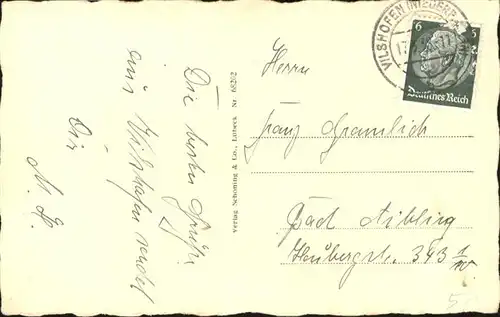 Die besten Grüße
aus Vilshofen sendet
Dir
M. P.
Verlag Schöning & Co., Lübeck Nr 68202
VILSHOFEN (NIEDERB
6
Deutsches Reich
Herrn
Franz Gramlich
Bad Aibling
Heubergstr. 343 1/IV
50